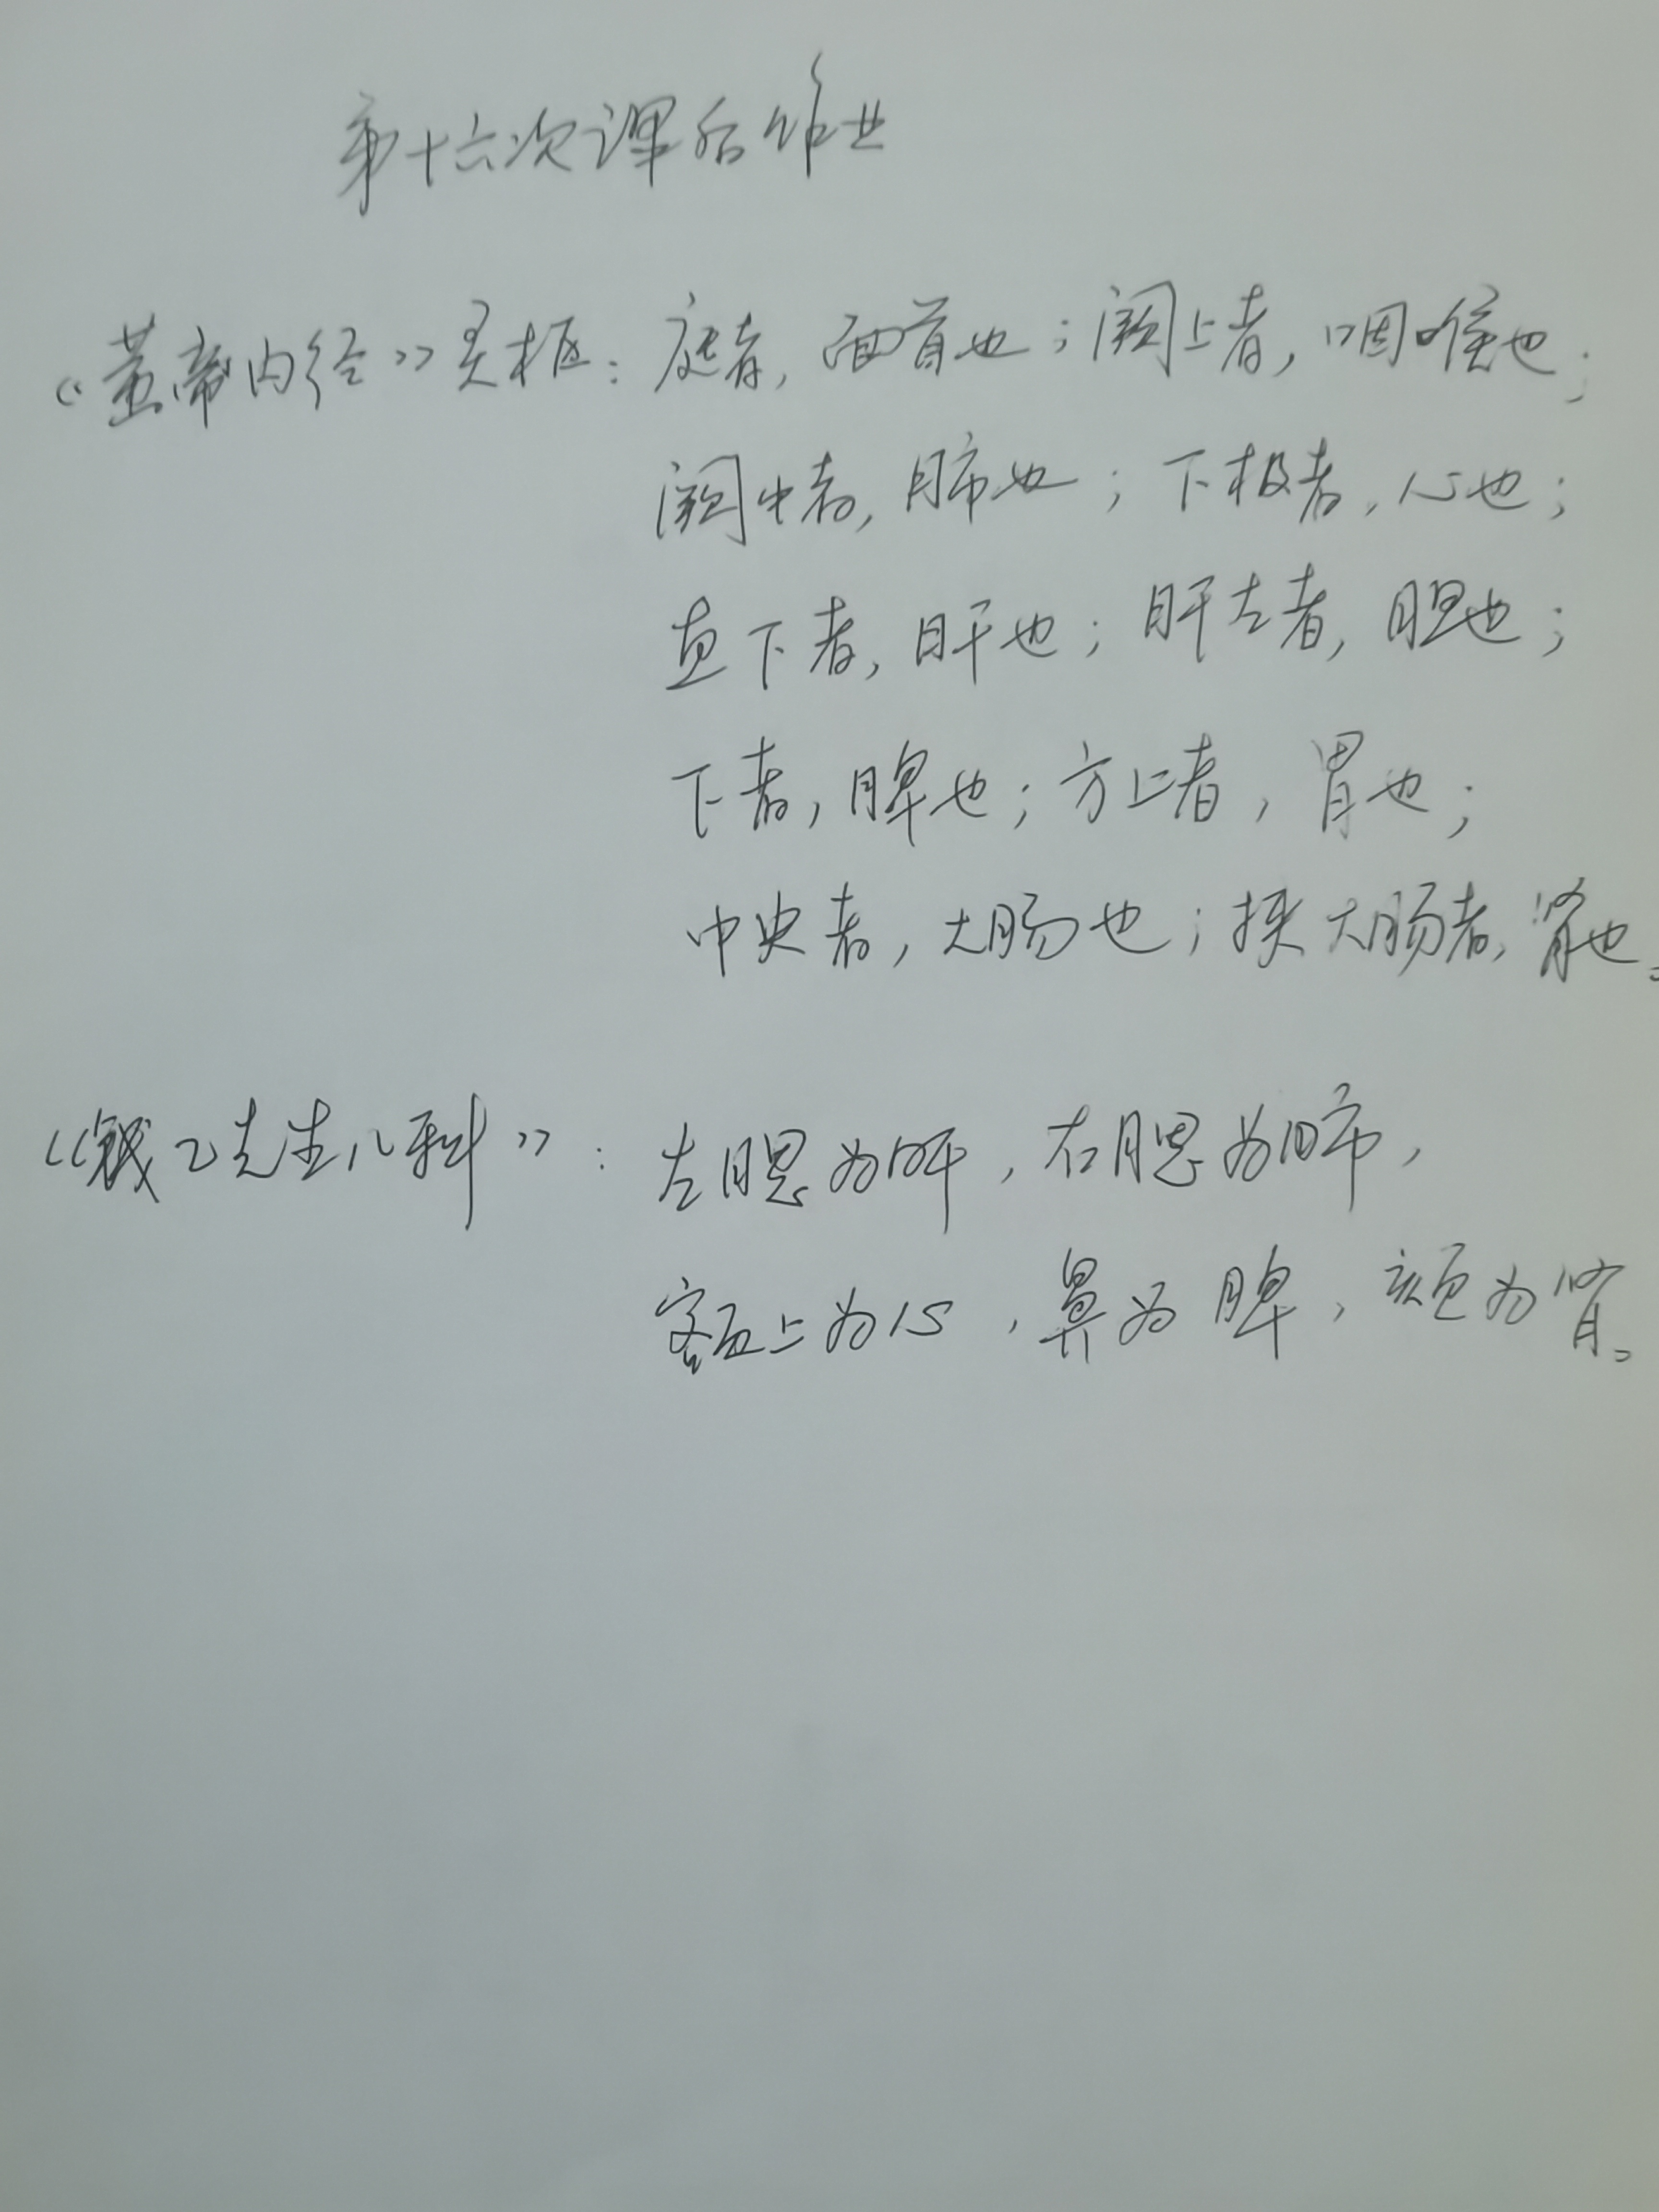 第十六次课后作业
《黄帝内经》灵枢：庭者，面首也；阙上者，咽喉也；
阙中者，肺也；下极者，心也；
直下者，肝也；肝左者，胆也；
下者，脾也；方上者，胃也；
中央者，大肠也；挟大肠者，肾也。
《钱乙先生儿科》：左腮为肝，右腮为肺，
额上为心，鼻为脾，颏为肾。